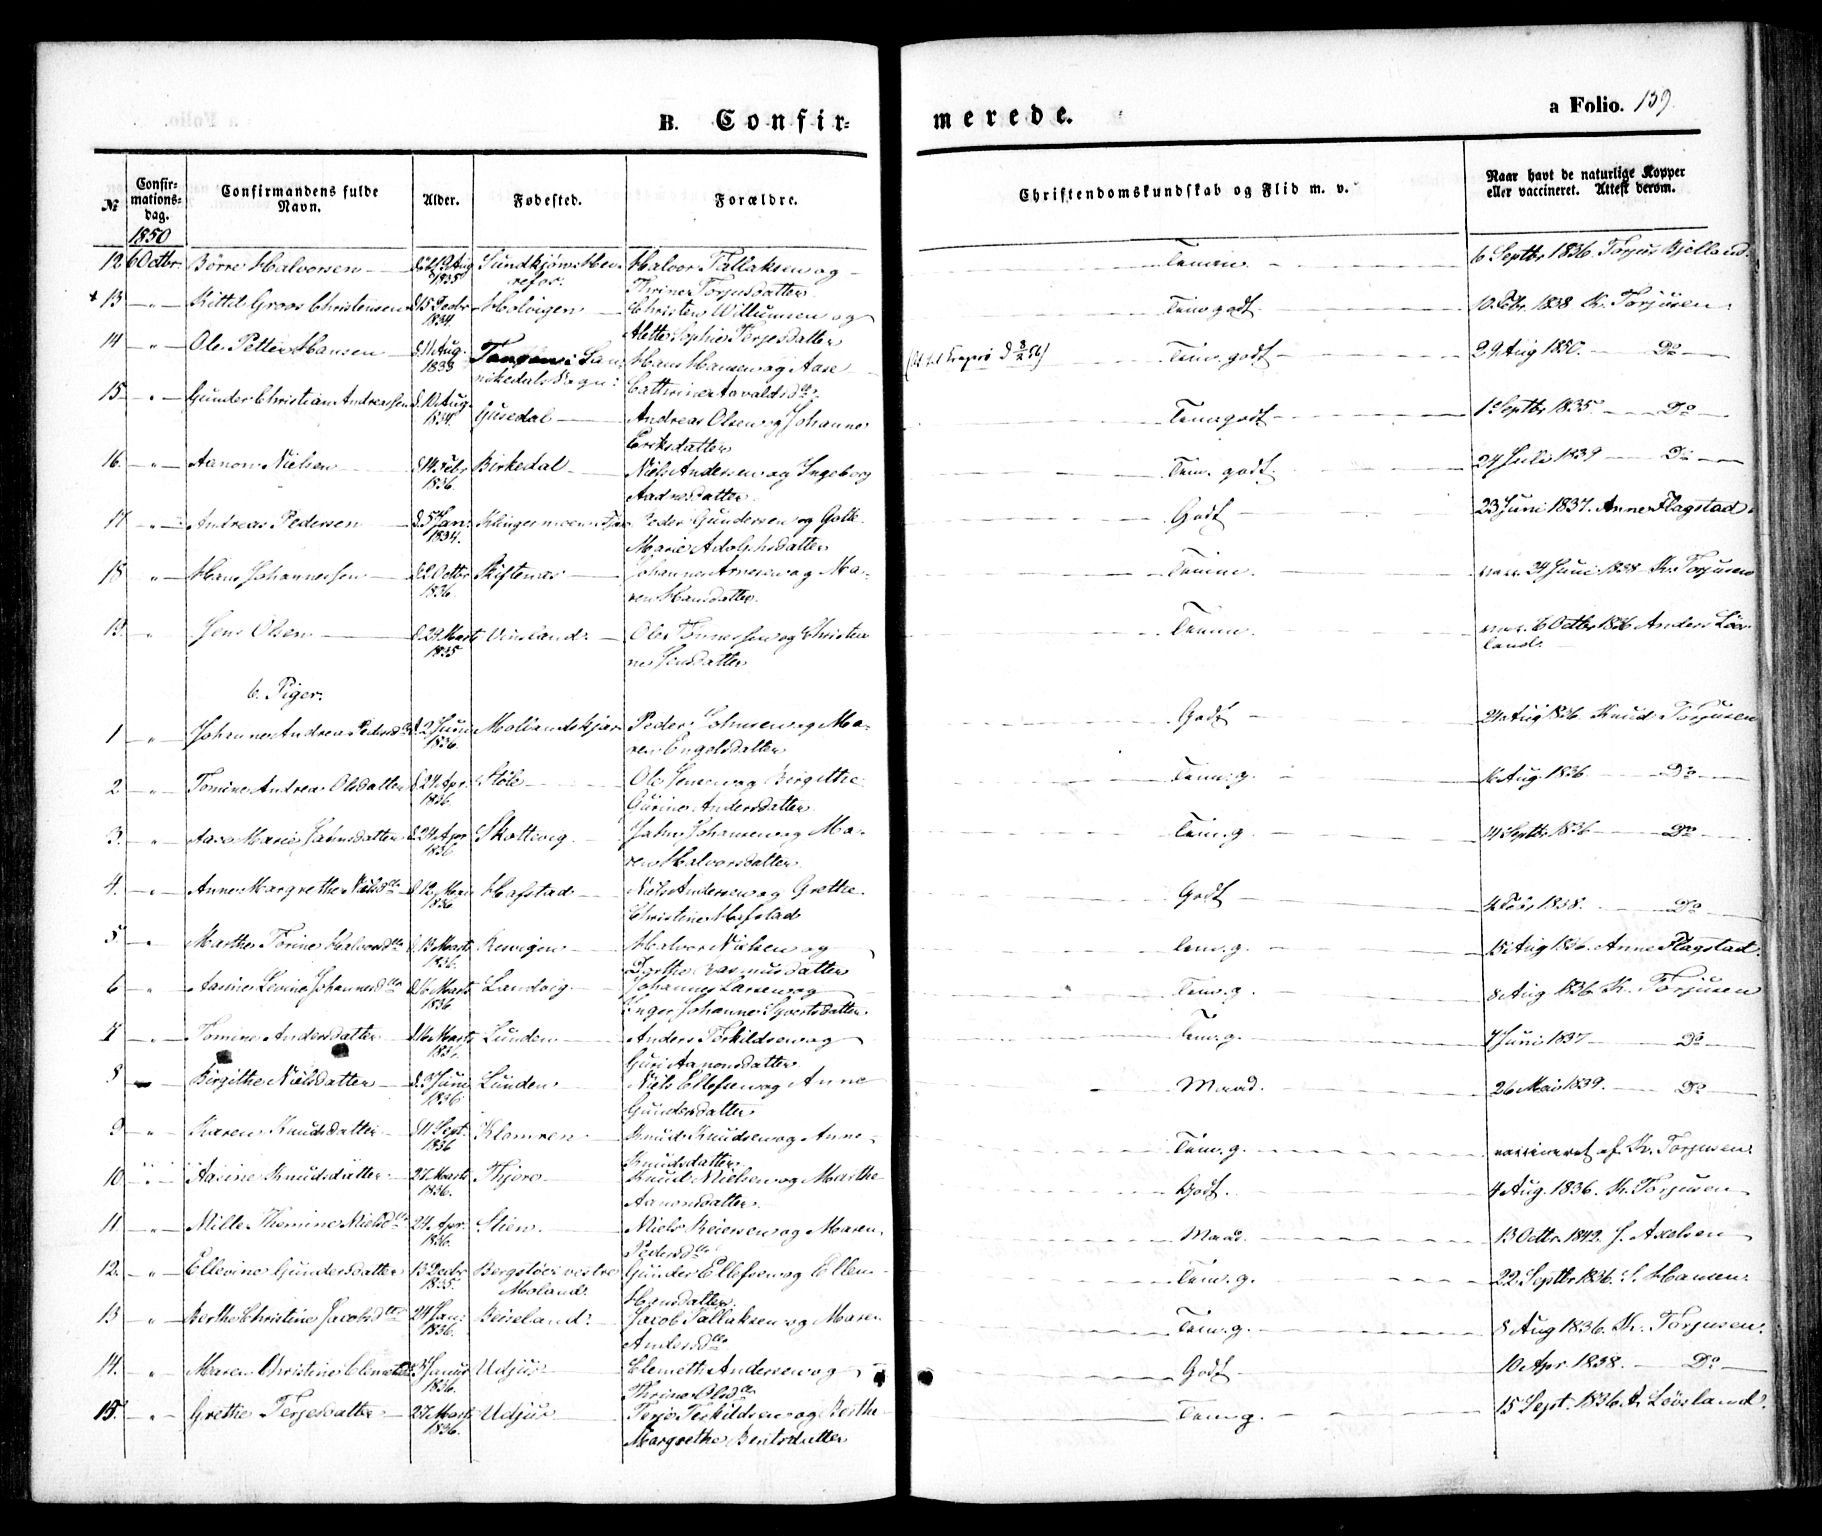 B. Confir-
merede.
a Folio. 139.
№
Confir-
mations-
dag.
Confirmandens fulde
Navn.
Alder.
Fødested.
Forældre.
Christendomskundskab og Flid m. v.
Naar havt de naturlige Kopper
eller vaccineret. Attest derom.
1850
12 6 Octbr. Børre Halvorsen d. 19 Aug 1835 Halvor Tallaksen og Thrine Torjusdatter Temm. 6 Septbr 1836. Torjus Bjelland.
+ 13 " Kittel Groos Christensen d. 15 Decbr 1834. Holvigen Christen Willumsen og Mette Sophie Terjesdatter Tem godt. 10 Febr. 1838 K. Torjusen.
14 " Ole Petter Hansen d. 11 Aug. 1833 Tangen i San- nikedals Sogn: Hans Hansen og Aase Cathrine Aavaldsd. Tem. godt 29 Aug 1830. Do
15 " Gunder Christian Andreassen d. 10 Aug. 1834. Gusedal Andreas Olsen og Johanne Eriksdatter Tem godt 1 Septbr 1835. Do
16. " Aanon Nielsen d. 14 Febr 1836. Birkedal Niels Andersen og Ingeborg Tem. godt. 24 Juli 1839 Do
17 " Andreas Pedersen d. 5 Jan. 1834. Peder Gundersen og Marie Adolphsdatter Godt 23 Juni 1837. Anne Flagstad.
18 " Hans Johannessen d. 2 Octbr 1836 Skiftenes Johannes Arnesen og Ma- ren Hansdatter. Temm. vacc. 24 Juni 1838 K. Torjusen
19. " Jens Olsen d. 29 Marts 1835 Ole Tønnessen og Christi- ne Jensdatter Temm. vac. 6 Octbr 1836 Anders Løv- land.
b. Piger.
1 " Johanne Andrea Pedersd. d. 2 Juni 1836. Molandskjær Peder Johnsen og Ma- ren Engelsdatter Godt 24 Aug 1836. Knud Torjusen
2 " Tomine Andrea Olsdatter d. 24 Apr. 1836. Støle Ole Jensen og Birgithe Gurine Andersdatter. Tem. g. 16 Aug 1836 Do
3. " Aase Marie Jahnsdatter d. 24 Apr 1836 Skottevig Jahn Johansen og Ma- ren Halvorsdatter. Tem. g. 14 Septbr 1836 Do
4. " Anne Margrethe Nielsd. d. 12 1836 Hafstad Niels Andersen og Grethe Christine Hafstad Godt 4 Febr 1838. Do
5. " Marthe Torine Halvorsd. d. 13 Marts 1836. Halvor Nielsen og Dorthe Rasmusdatter Tem. g. 15 Aug 1836. Anne Flagstad.
6 " Levine Johannesd. d. 16 Marts 1836 Landvig Johannes Larsen og Inger Johanne Sivertsdatter. Tem. g. 8 Aug 1836 K. Torjusen
7 " Tomine Andersdatter d. 16 Marts 1836. Lunden Anders Terkildsen og Guri Aanonsdatter Tem. g. 7 Juni 1837 Do
8 Birgithe Nielsdatter d. 3 Juni 1836. Lunden Niels Ellefsen og Anne Gundersdatter Maad. 26 Mai 1839. Do
9 " Karen Knudsdatter d. 11 Sept. 1836 Klomren Knud Knudsen og Anne Knudsdatter Tem. g. vaccineret af K. Torjusen.
10. " Aasine Knudsdatter 27 Marts 1836. Thjore Knud Nielsen og Marthe Aanonsdatter. Godt. 4 Aug. 1836. K. Torjusen
11 " Mille Thomine Nielsd. 24 Apr. 1836. Stien Niels Reiersen og Maren Pedersd. Maad. 13 Octbr. 1842. J. Axelsen
12. " Ellevine Gundersdatter 13 Decbr 1835. Bergstøe i vestre Moland. Gunder Ellefsen og Ellen Hansdatter Tem. g. 22 Septbr 1836. S. Hansen.
13 " Berthe Christine Jacobsd. 24 Jan. 1836. Beiseland. Jacob Tallaksen og Maren Andersd. Tem. g. 8 Aug 1836. K. Torjusen.
14. " Maren Christine 3 Januar 1836. Udjus Clemeth Andersen og Thrine Olsd. Godt 10 Apr. 1838. Do
15. " Grethe Terjesdatter 27 Marts 1836. Udjus Terje Terkildsen og Berthe Margrethe Berntsdatter Tem g. 15 Sept. 1836 Løvland.